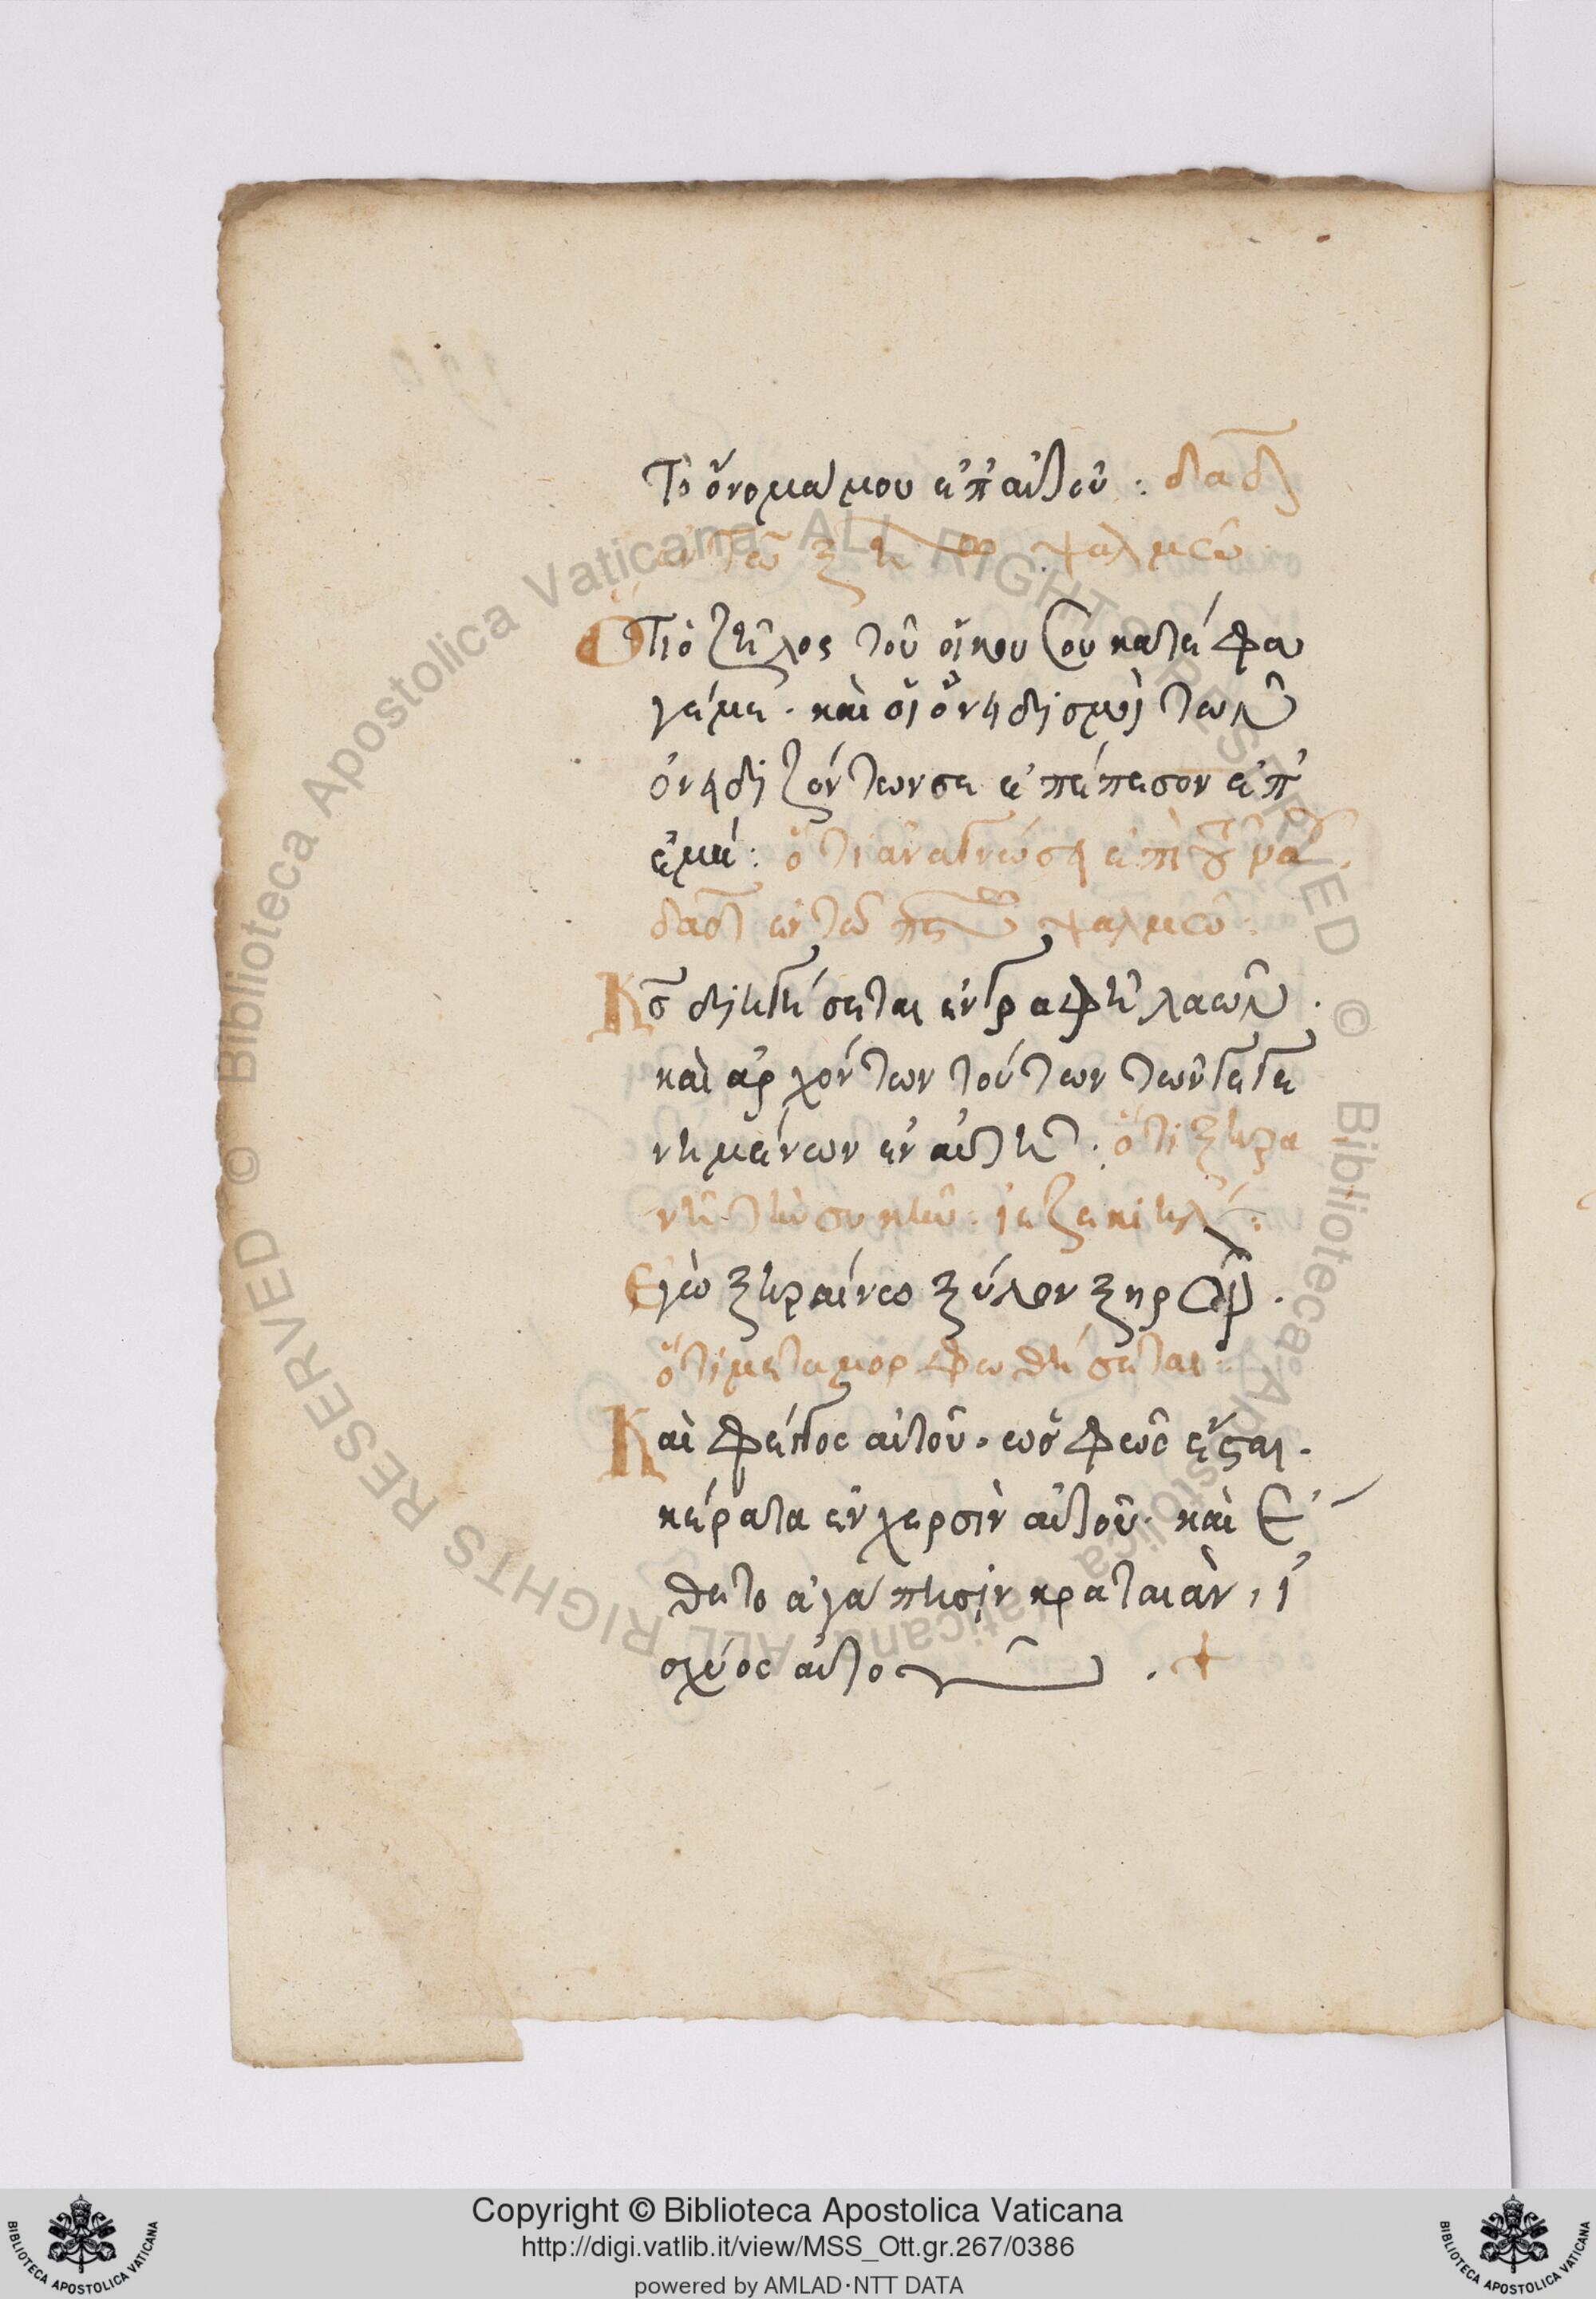 Τὸ ὄνομα μου ἐπ' αὐτοῦ : δαδ
ἐν τῶ ξη ψαλμῶ
Ὅτι ὁ ζῆλος τοῦ οἴκου σου κατέφα
γέ με · καὶ οἱ ὀνειδισμοὶ τῶν
ὀνειδιζόντων σε ἐπέπεσον ἐπ'
ἐμέ : ὅτι ἀναγνώσει
δαδ ἐν τῶ ψαλμῶ :
Κς διηγήσεται ἐν γραφῆ λαῶν ·
καὶ ἀρχόντων τούτων τῶν γεγε
νημένων ἐν αὐτῆ : ὅτι ξηρα
νεῖ τὴν συκῆν · ἰεζεκιήλ :
Ἐγὼ ξηραίνω ξύλον ξηρόν ·
ὅτι μεταμορφωθήσεται :
Καὶ φέγγος αὐτοῦ · ὡς φῶς ἔσται ·
κέρατα ἐν χερσὶν αὐτοῦ · καὶ ἔ
θετο ἀγάπησιν κραταιὰν , ἰ
σχύος αὐτοῦ . +
© Biblioteca Apostolica Vaticana ALL RIGHTS RESERVED © Biblioteca Apostolica Vaticana ALL RIGHTS RESERVED
BIBLIOTECA APOSTOLICA VATICANA
Copyright © Biblioteca Apostolica Vaticana
http://digi.vatlib.it/view/MSS_Ott.gr.267/0386
powered by AMLAD·NTT DATA
BIBLIOTECA APOSTOLICA VATICANA